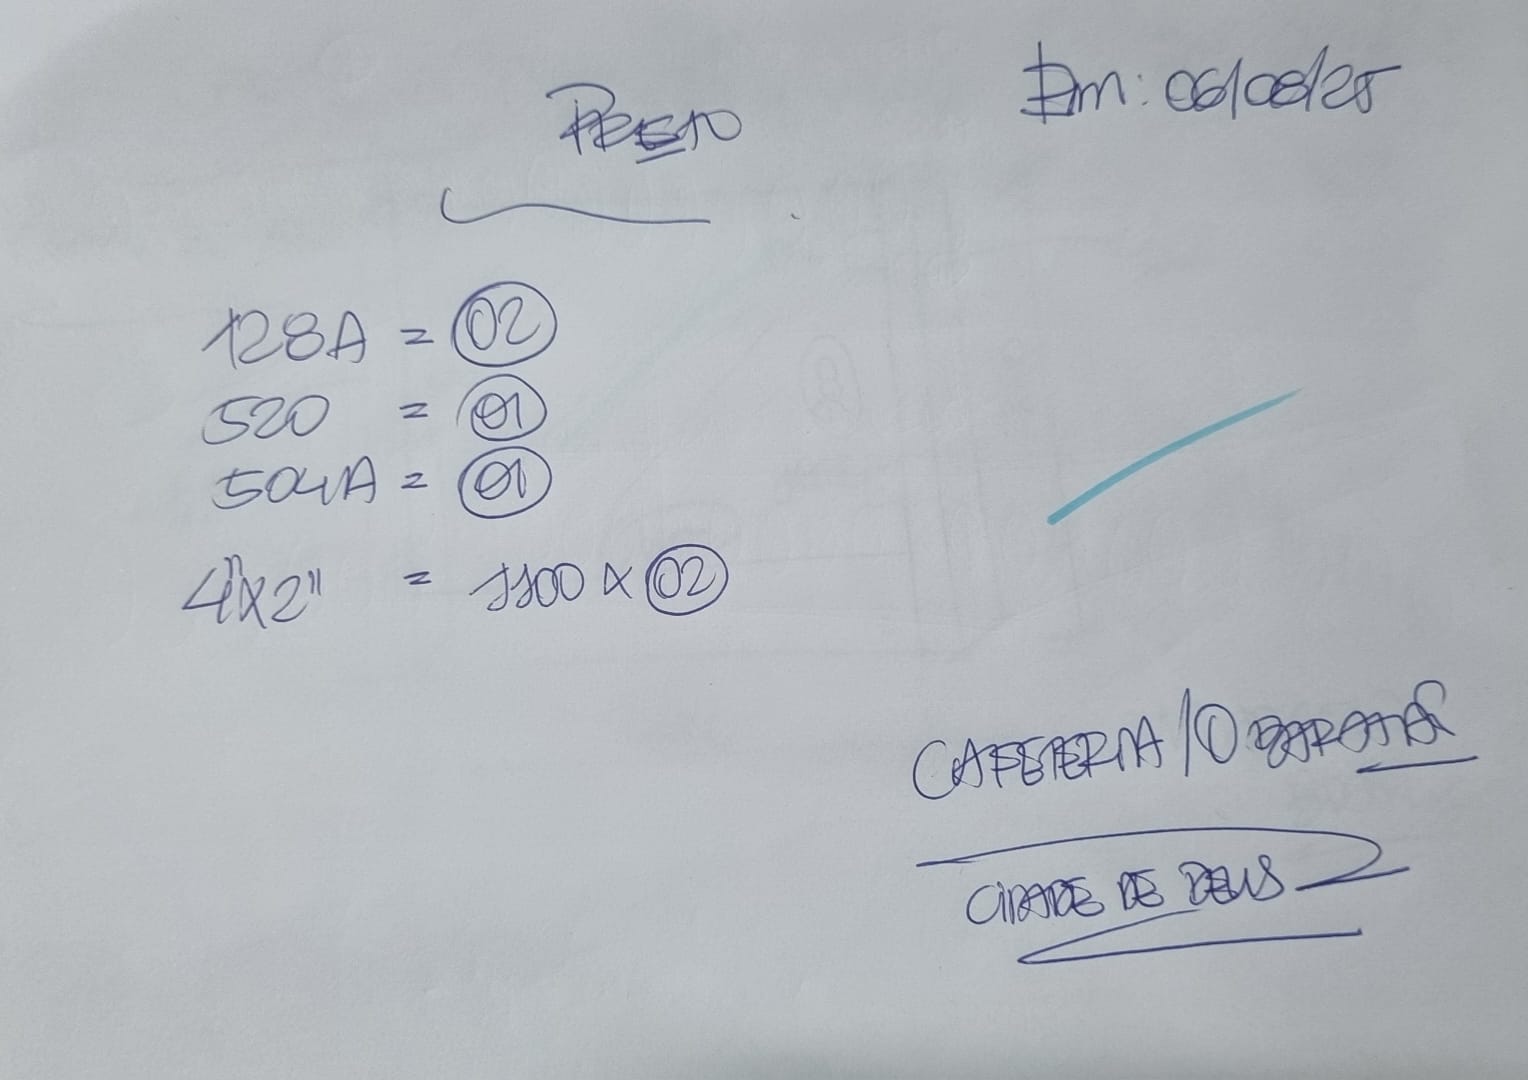 PRETO
Em: 06/08/25
128A = 02
520 = 01
504A = 01
4"x2" = 1100 x 02
CAFETERIA / O BARATÃO
CIDADE DE DEUS